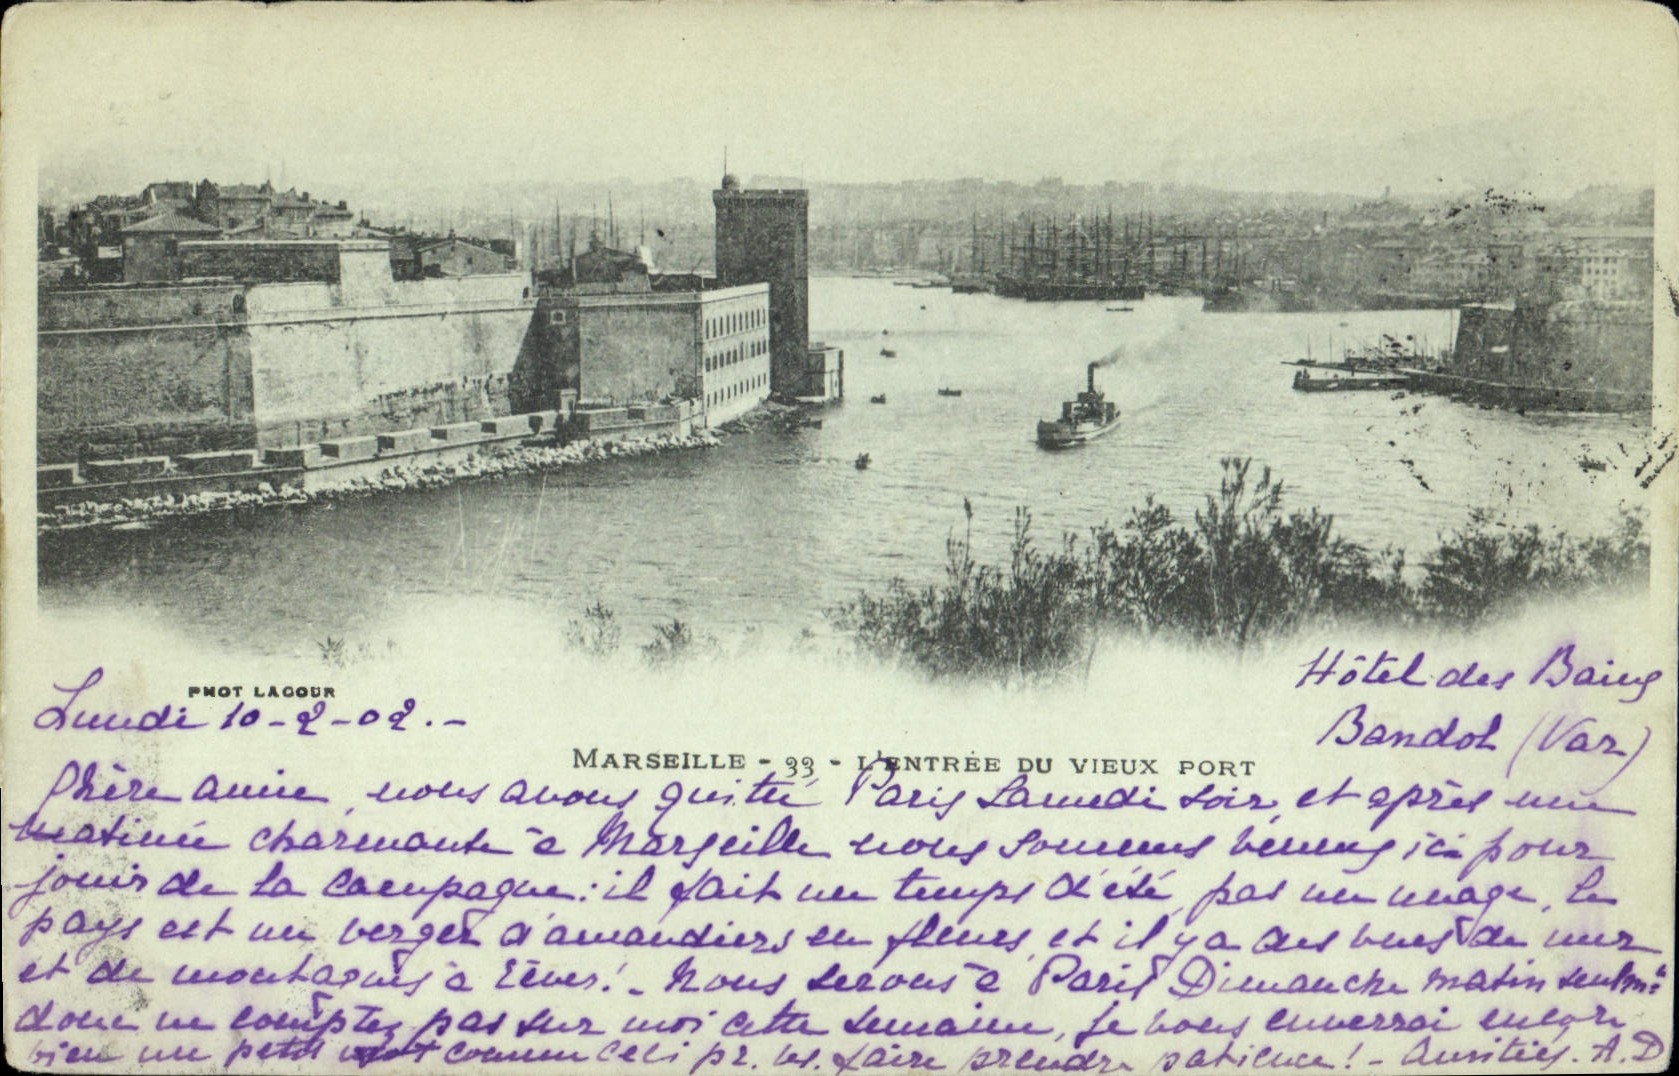 Hôtel des Bains
Bandol (Var)
PHOT LACOUR
Lundi 10-2-02.-
MARSEILLE - 33 - L'ENTRÉE DU VIEUX PORT
Chère amie, nous avons quitté Paris Samedi soir, et après une
matinée charmante à Marseille nous sommes venus ici pour
jouir de la campagne: il fait un temps d'été, pas un nuage, le
pays est un verger d'amandiers en fleurs, et il y a des vues de mer
et de montagnes à rêver! - Nous serons à Paris Dimanche matin seulmt:
donc ne comptez pas sur moi cette semaine, je vous enverrai encore
bien un petit mot comme celi pr. vs. faire prendre patience! - Amitiés. A.D